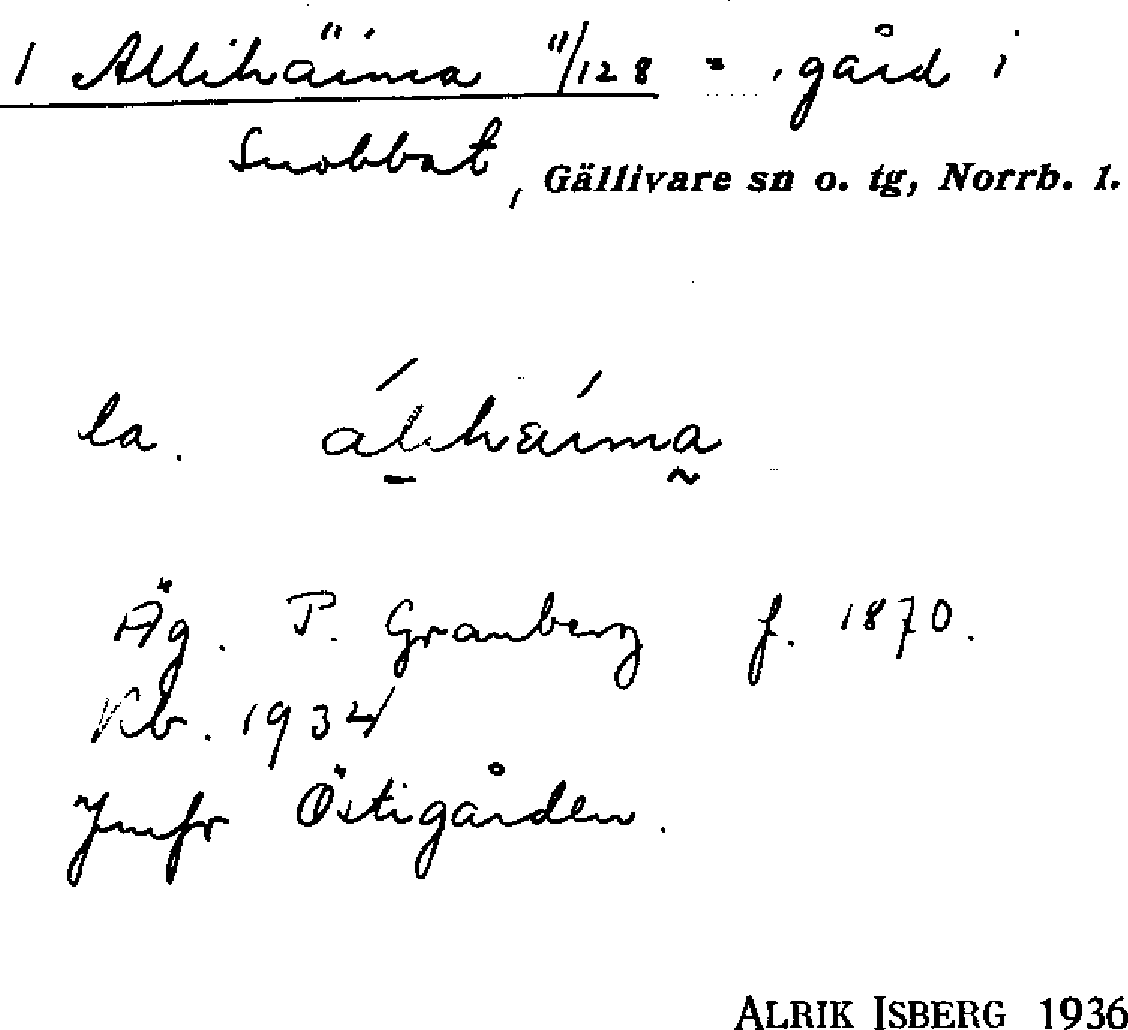 1 Allihäima 11/128 = gård i
Snobbat, Gällivare sn o. tg, Norrb. l.
la. álihæíma
Äg. P. Granberg f. 1870.
Kb. 1934
Jmfr Östigården.
ALRIK ISBERG 1936